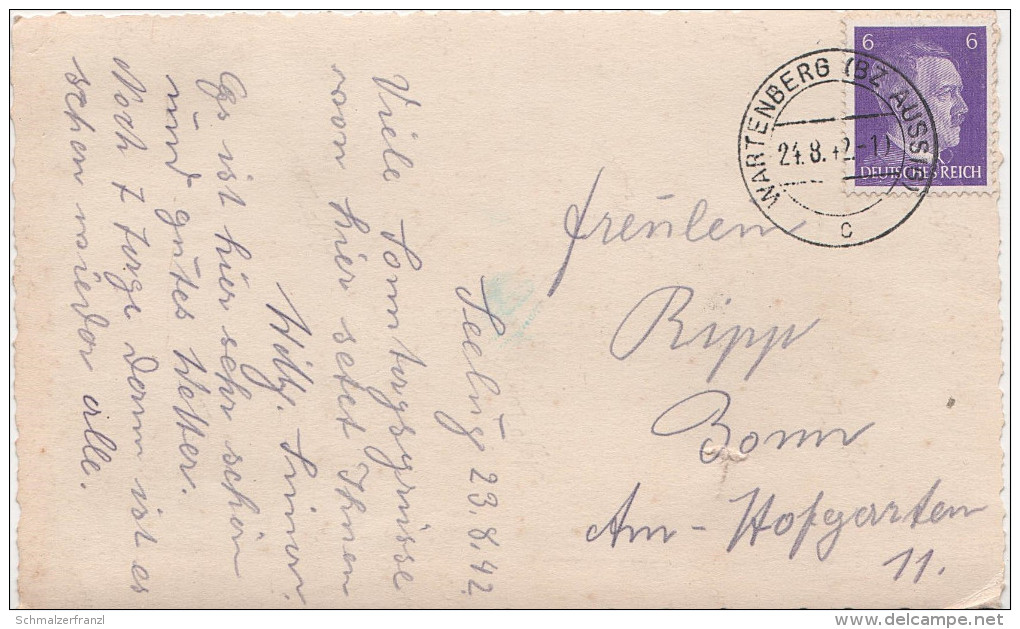 6 6
DEUTSCHES REICH
WARTENBERG (BZ AUSSIG)
24.8.42.-10
c
Freulein
Ripp
Bonn
Am-Hofgarten
11.
Seelüz 23.8.42
Viele Sonntagsgrüsse
von hier setet Ihnen
Willy.
Es ist hier sehr schön
und gutes Wetter.
Noch 7 Tage dann ist es
schon wieder alle.
Schmalzerfranzl
delcampe.net